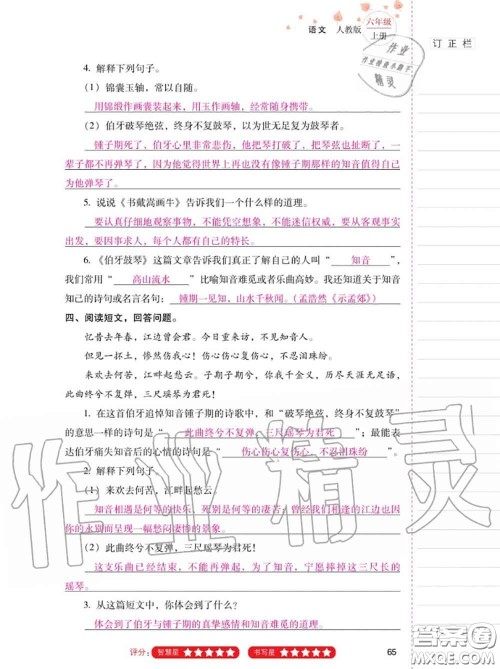 语文 人教版 六年级上册
订正栏
4. 解释下列句子。
（1）锦囊玉轴，常以自随。
用锦缎作画囊装起来，用玉作画轴，经常随身携带。
（2）伯牙破琴绝弦，终身不复鼓琴，以为世无足复为鼓琴者。
锺子期死了，伯牙心里非常悲伤，他把琴打破了，把琴弦也扯断了，一
辈子都不再弹琴了，因为他觉得世界上再没有像锺子期那样的知音值得自己
为他弹琴了。
5. 说说《书戴嵩画牛》告诉我们一个什么样的道理。
要认真仔细地观察事物，不能凭空想象，不能想当然，要从实际出发，
要因事求人，每个人都有自己的特长。
6. 《伯牙鼓琴》这篇文章告诉我们真正了解自己的人叫“ 知音 ”，
我们常用“ 高山流水 ”比喻知音难觅或者乐曲高妙。我还知道关于知音
知己的诗句或名言名句：锺期一见知，山水千秋闻。（孟浩然《示孟郊》）
四、阅读短文，回答问题。
忆昔去年春，江边曾会君。今日重来访，不见知音人。
但见一抔土，惨然伤我心！伤心伤心复伤心，不忍泪珠纷。
来欢去何苦，江畔起愁云。子期子期兮，你我千金义，历尽天涯无足语，
此曲终兮不复弹，三尺瑶琴为君死！
1. 在这首伯牙追悼知音锺子期的诗歌中，和“破琴绝弦，终身不复鼓琴”
的意思一样的诗句是“ 此曲终兮不复弹，三尺瑶琴为君死 ”；最能表
达伯牙痛失知音后的心情的诗句是“ 伤心伤心复伤心，不忍泪珠纷 ”。
2. 解释下列句子。
（1）来欢去何苦，江畔起愁云。
知音相遇是何等的快乐，死别是何等的凄苦，曾经我们共赏的江边也因
你的永别而呈现一幅愁闷凄惨的景象。
（2）此曲终兮不复弹，三尺瑶琴为君死！
这支乐曲已经结束，不能再弹奏，为了知音，宁愿摔掉这三尺长的
瑶琴。
3. 从这篇短文中，你体会到了什么？
体会到了伯牙与锺子期的真挚感情和知音难觅的道理。
评分： 智慧星 ★★★★★ 书写星 ★★★★★
65
作业精灵
MXQE.COM